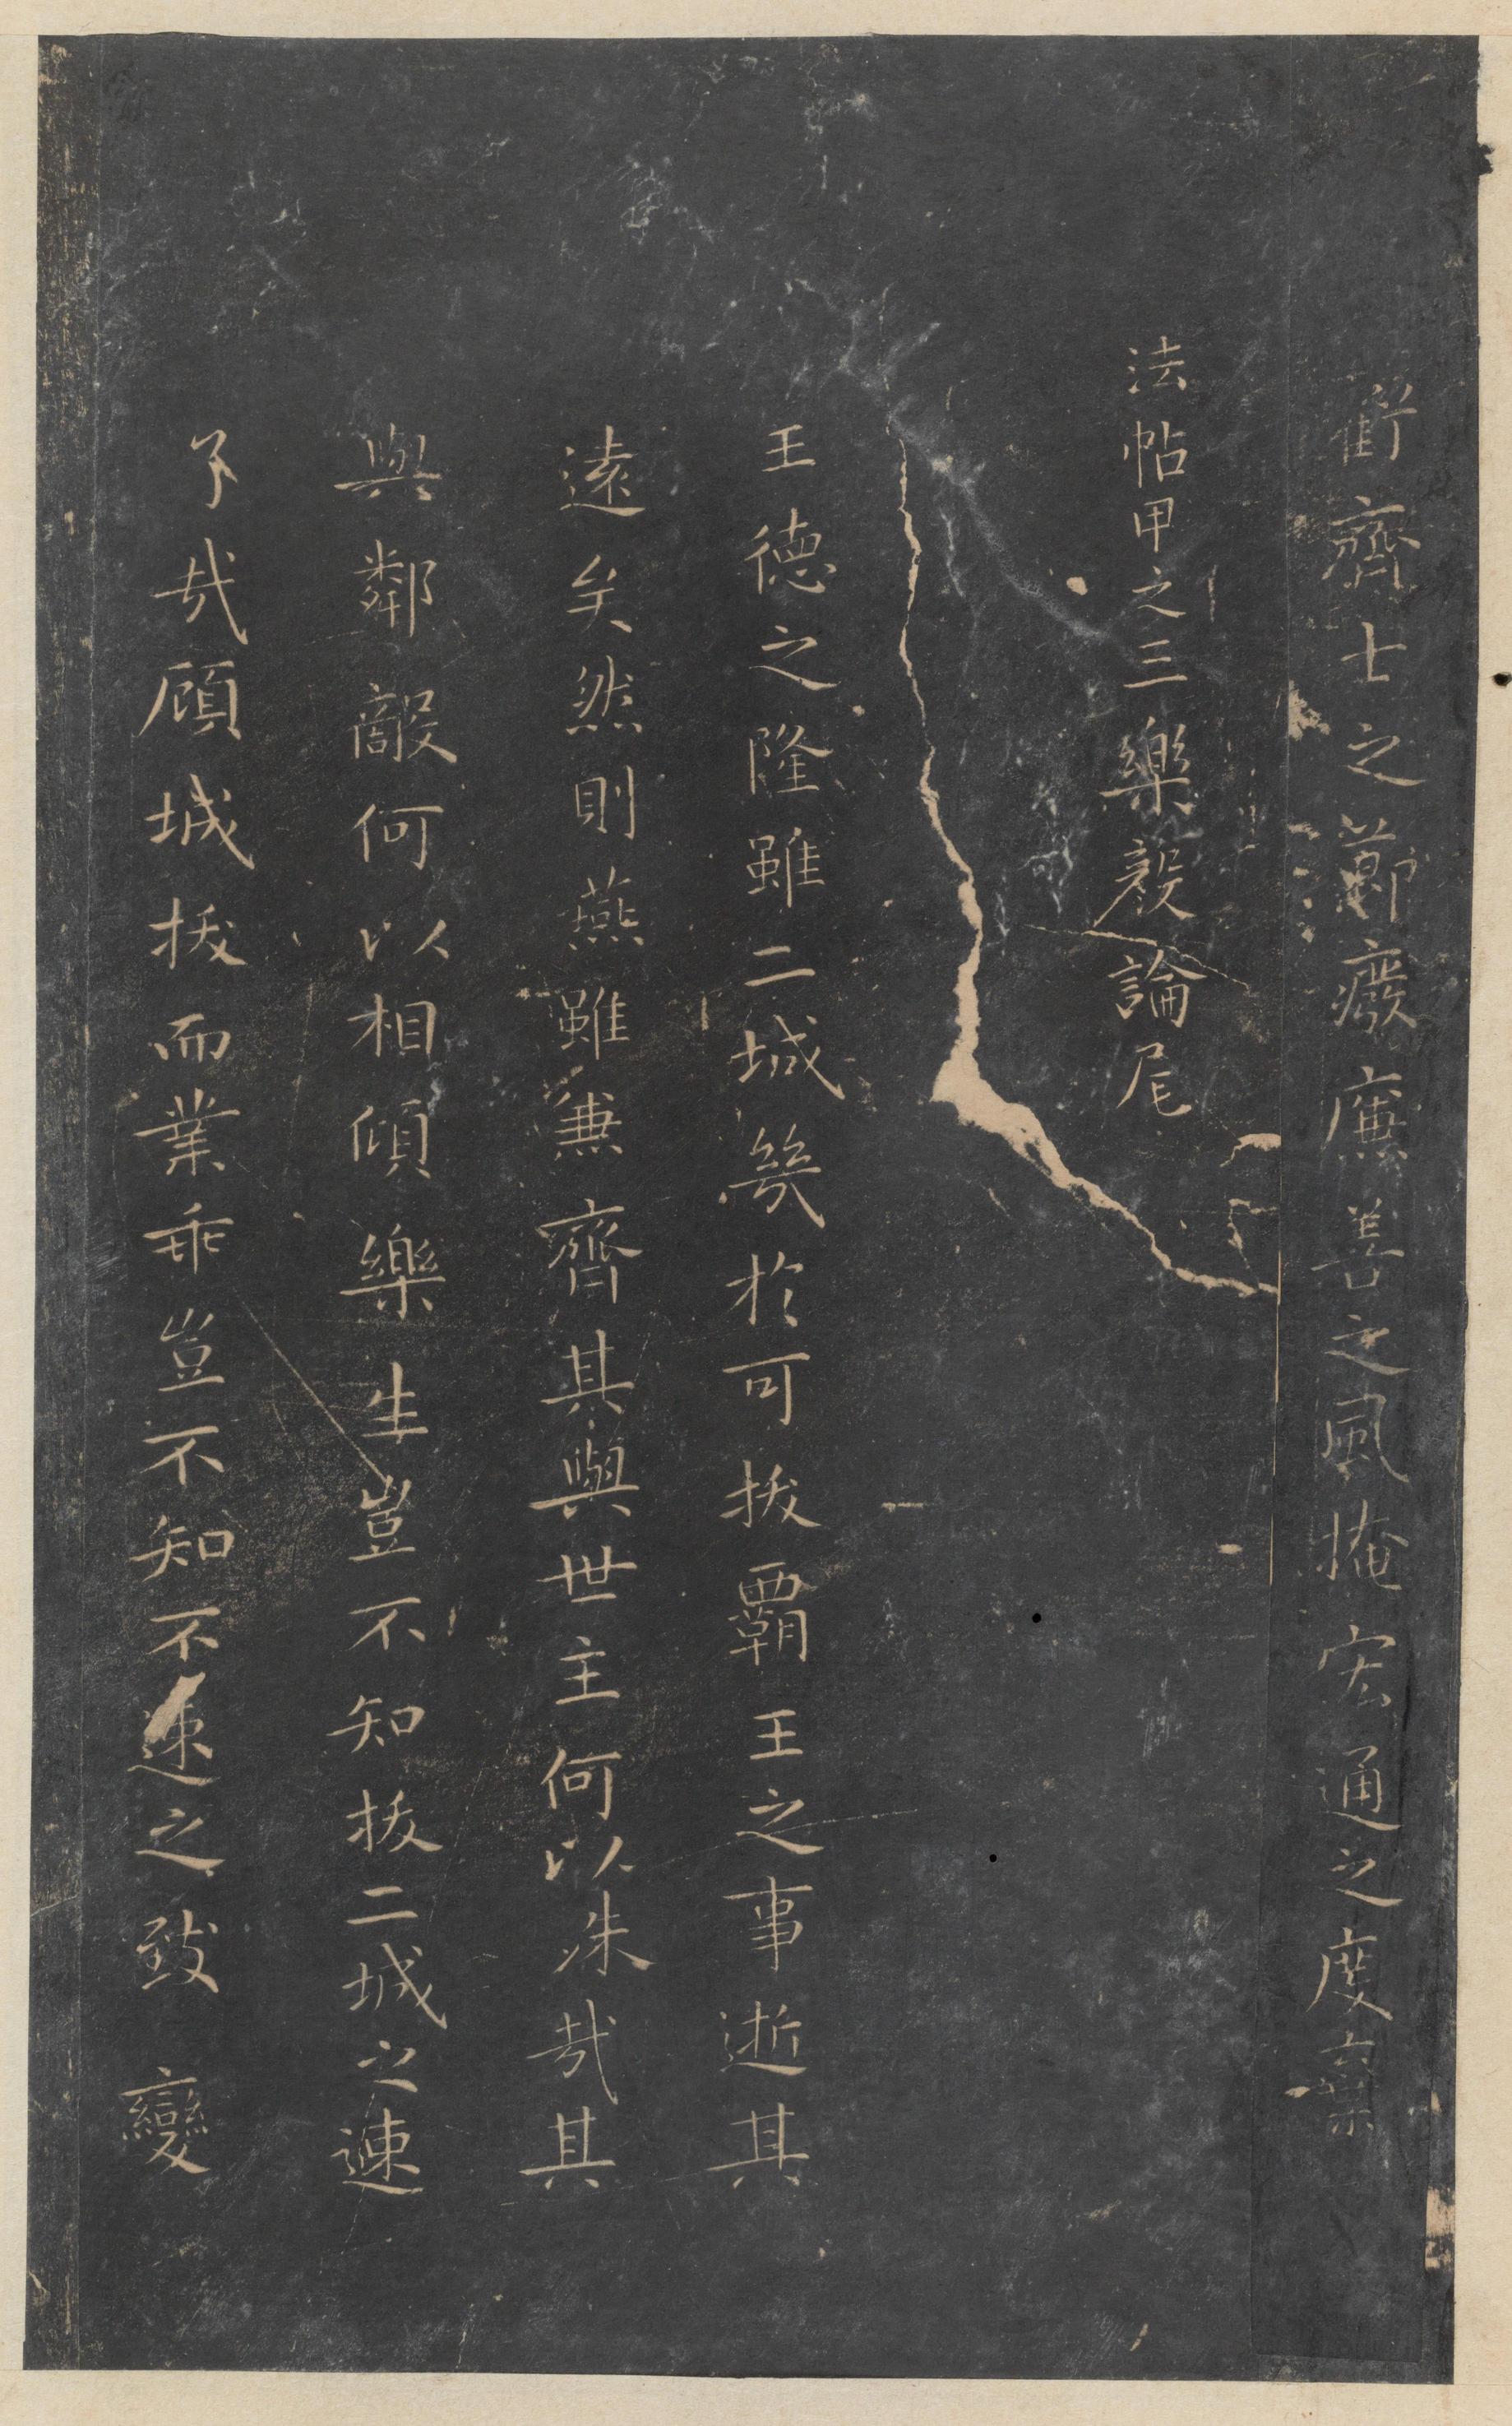 虧齊士之節廢廉善之風掩宏通之度棄
法帖甲之三樂毅論尾
王德之隆雖二城幾於可拔霸王之事逝其
遠矣然則燕雖兼齊其與世主何以殊哉其
與鄰敵何以相傾樂生豈不知拔二城之速
了哉顧城拔而業乖豈不知不速之致變